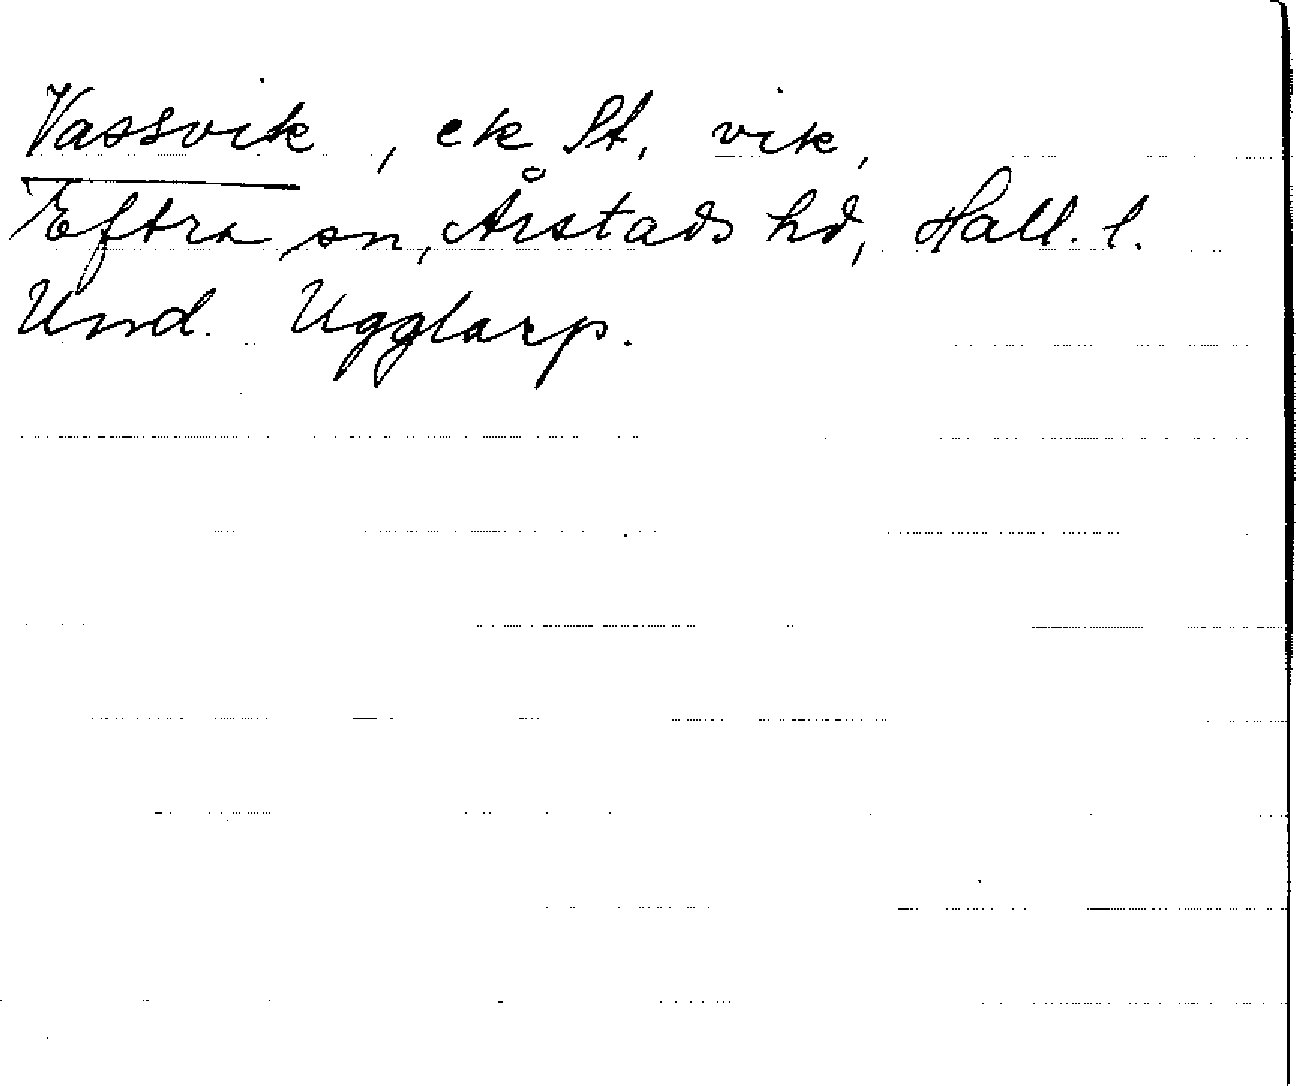 Vassvik, ek St, vik,
Eftra sn, Årstads hd, Hall. l.
Und. Ugglarp.